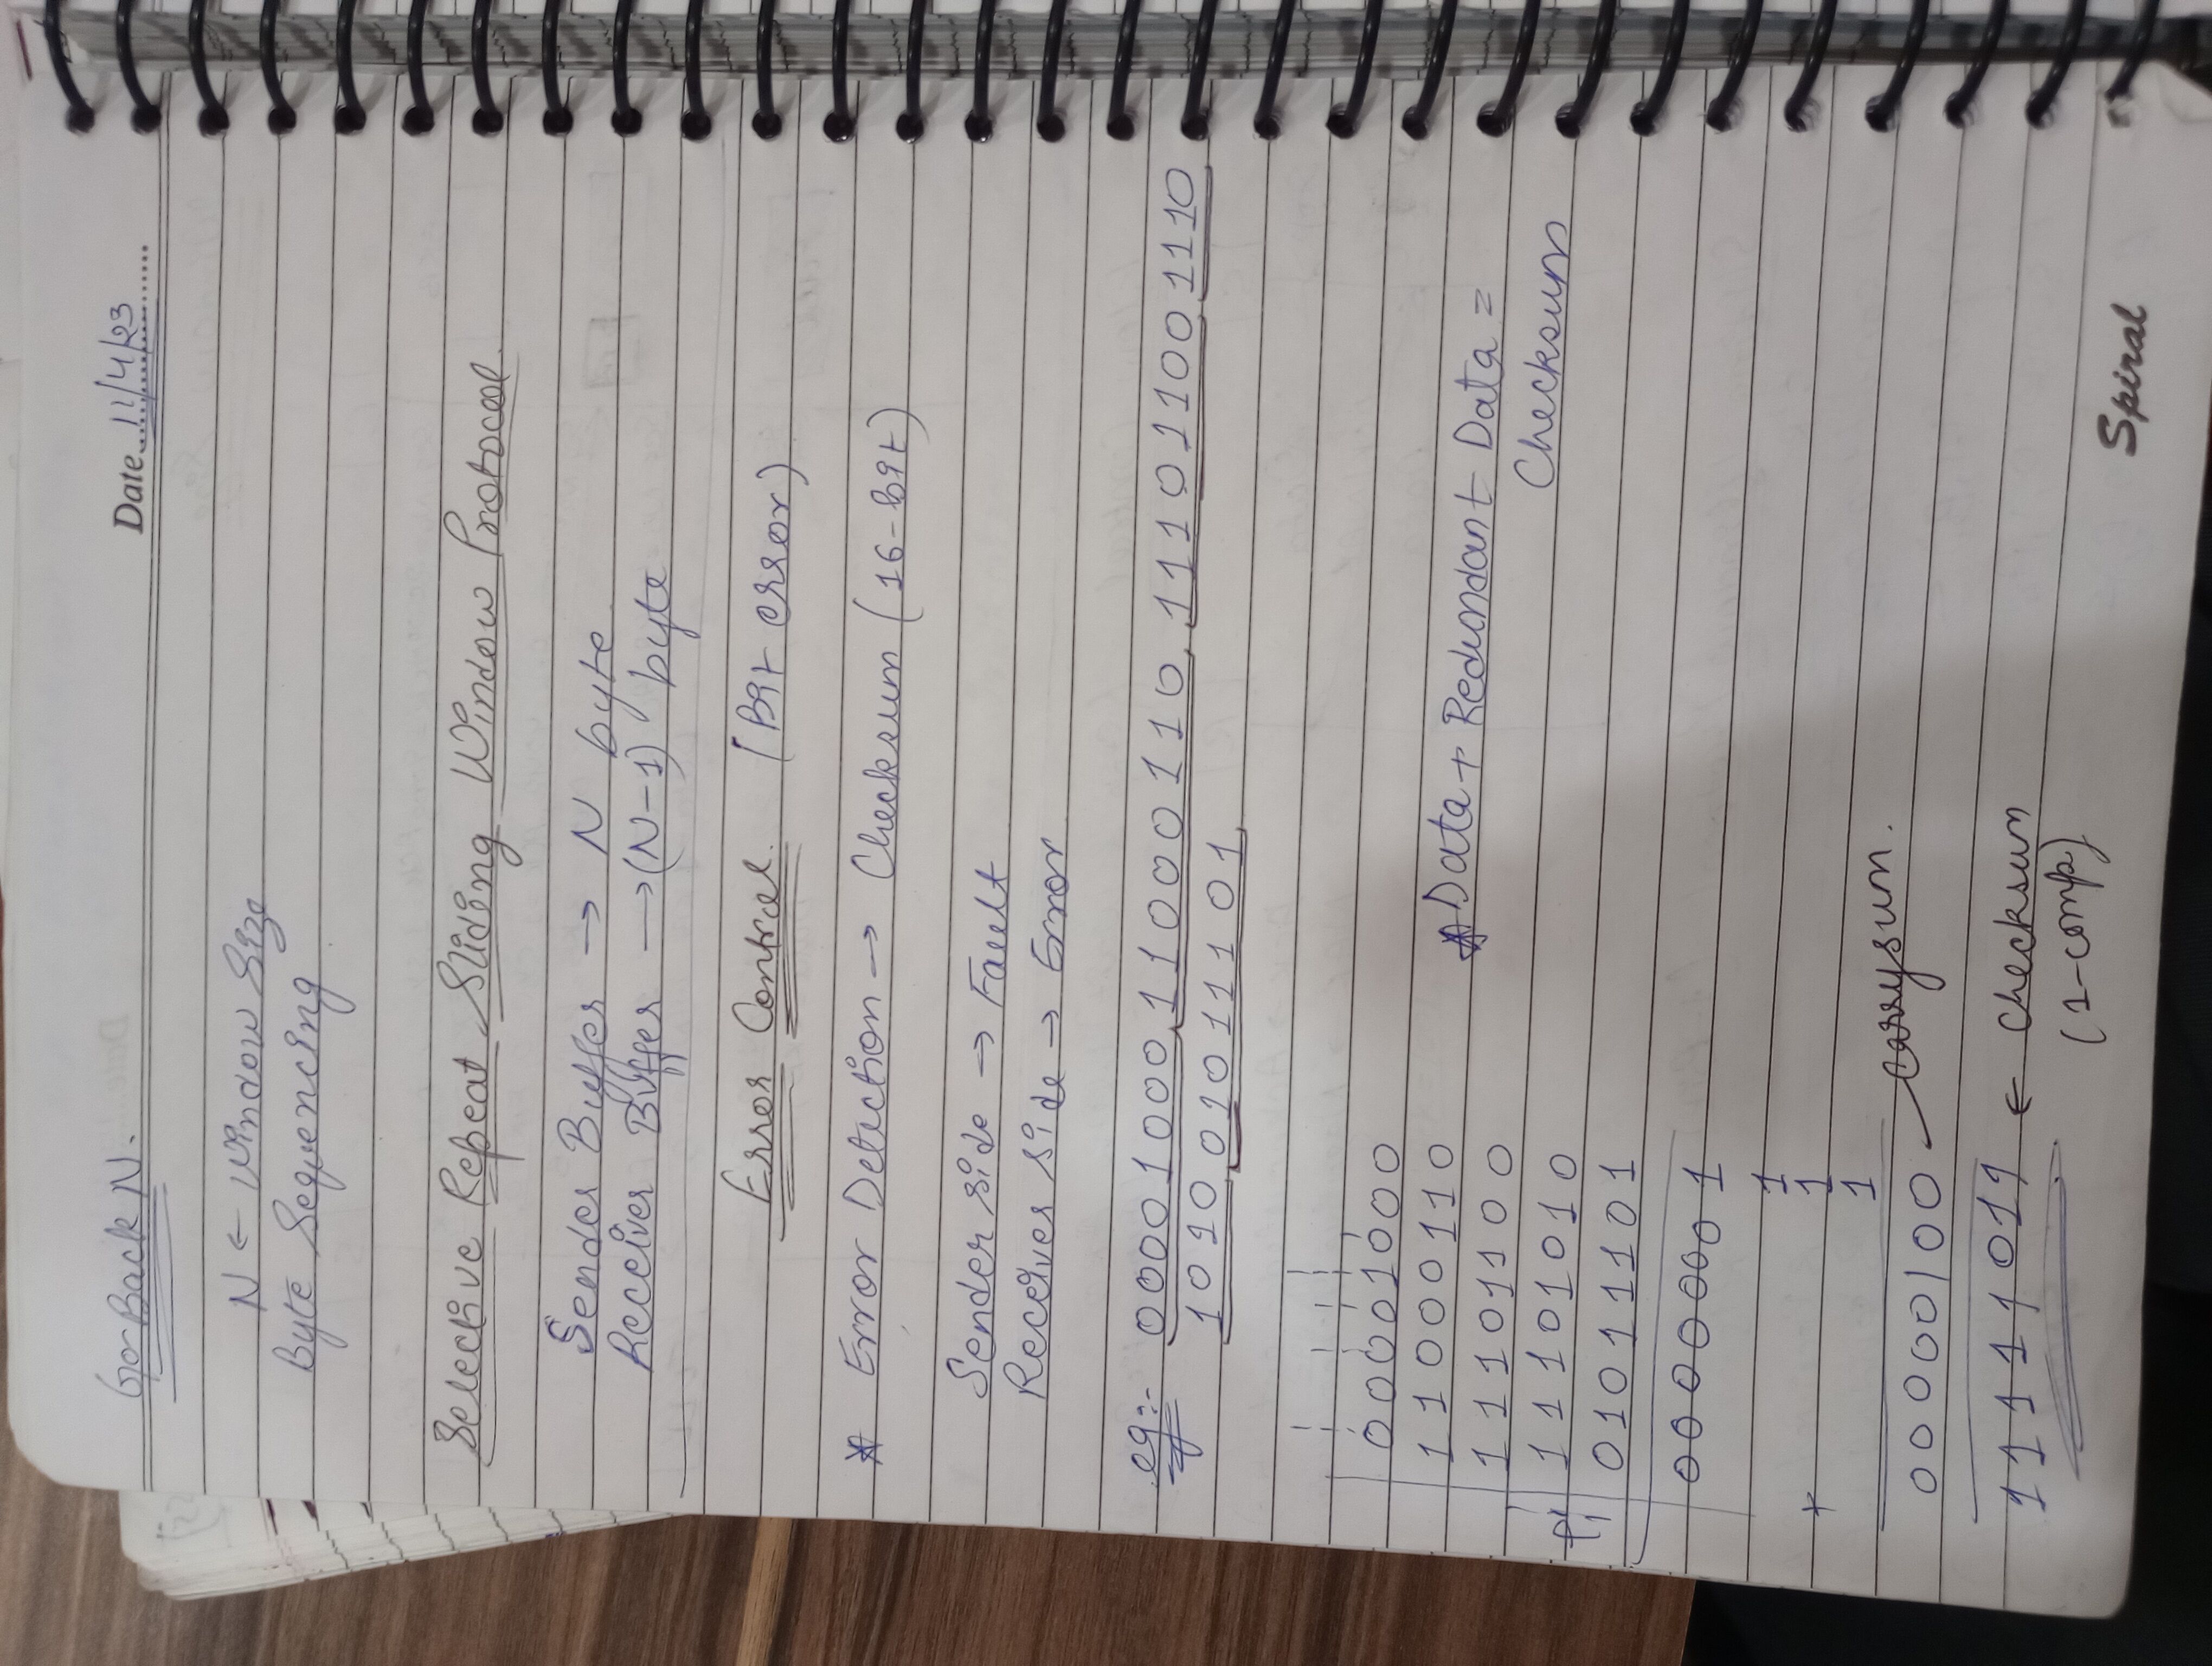 Go-Back N.
Date 11/4/23
N ← Window Size
Byte Sequencing
Selective Repeat Sliding Window Protocol.
Sender Buffer → N byte
Receiver Buffer → (N-1) byte
Error Control. (Bit error)
* Error Detection → Checksum (16-bit)
Sender side → Fault
Receiver side → Error
eg:- 00001000 11000110 11101100 1110
1010 01011101
00001000
11000110
11101100
11101010
01011101
00000001
1
+ 1
1
00000100 carrysum.
11111011 ← Checksum
(1-comp)
* Data + Redundant Data =
Checksum
Spiral